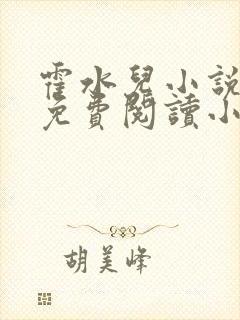 霍水兒小說
免費閱讀小
胡美峰